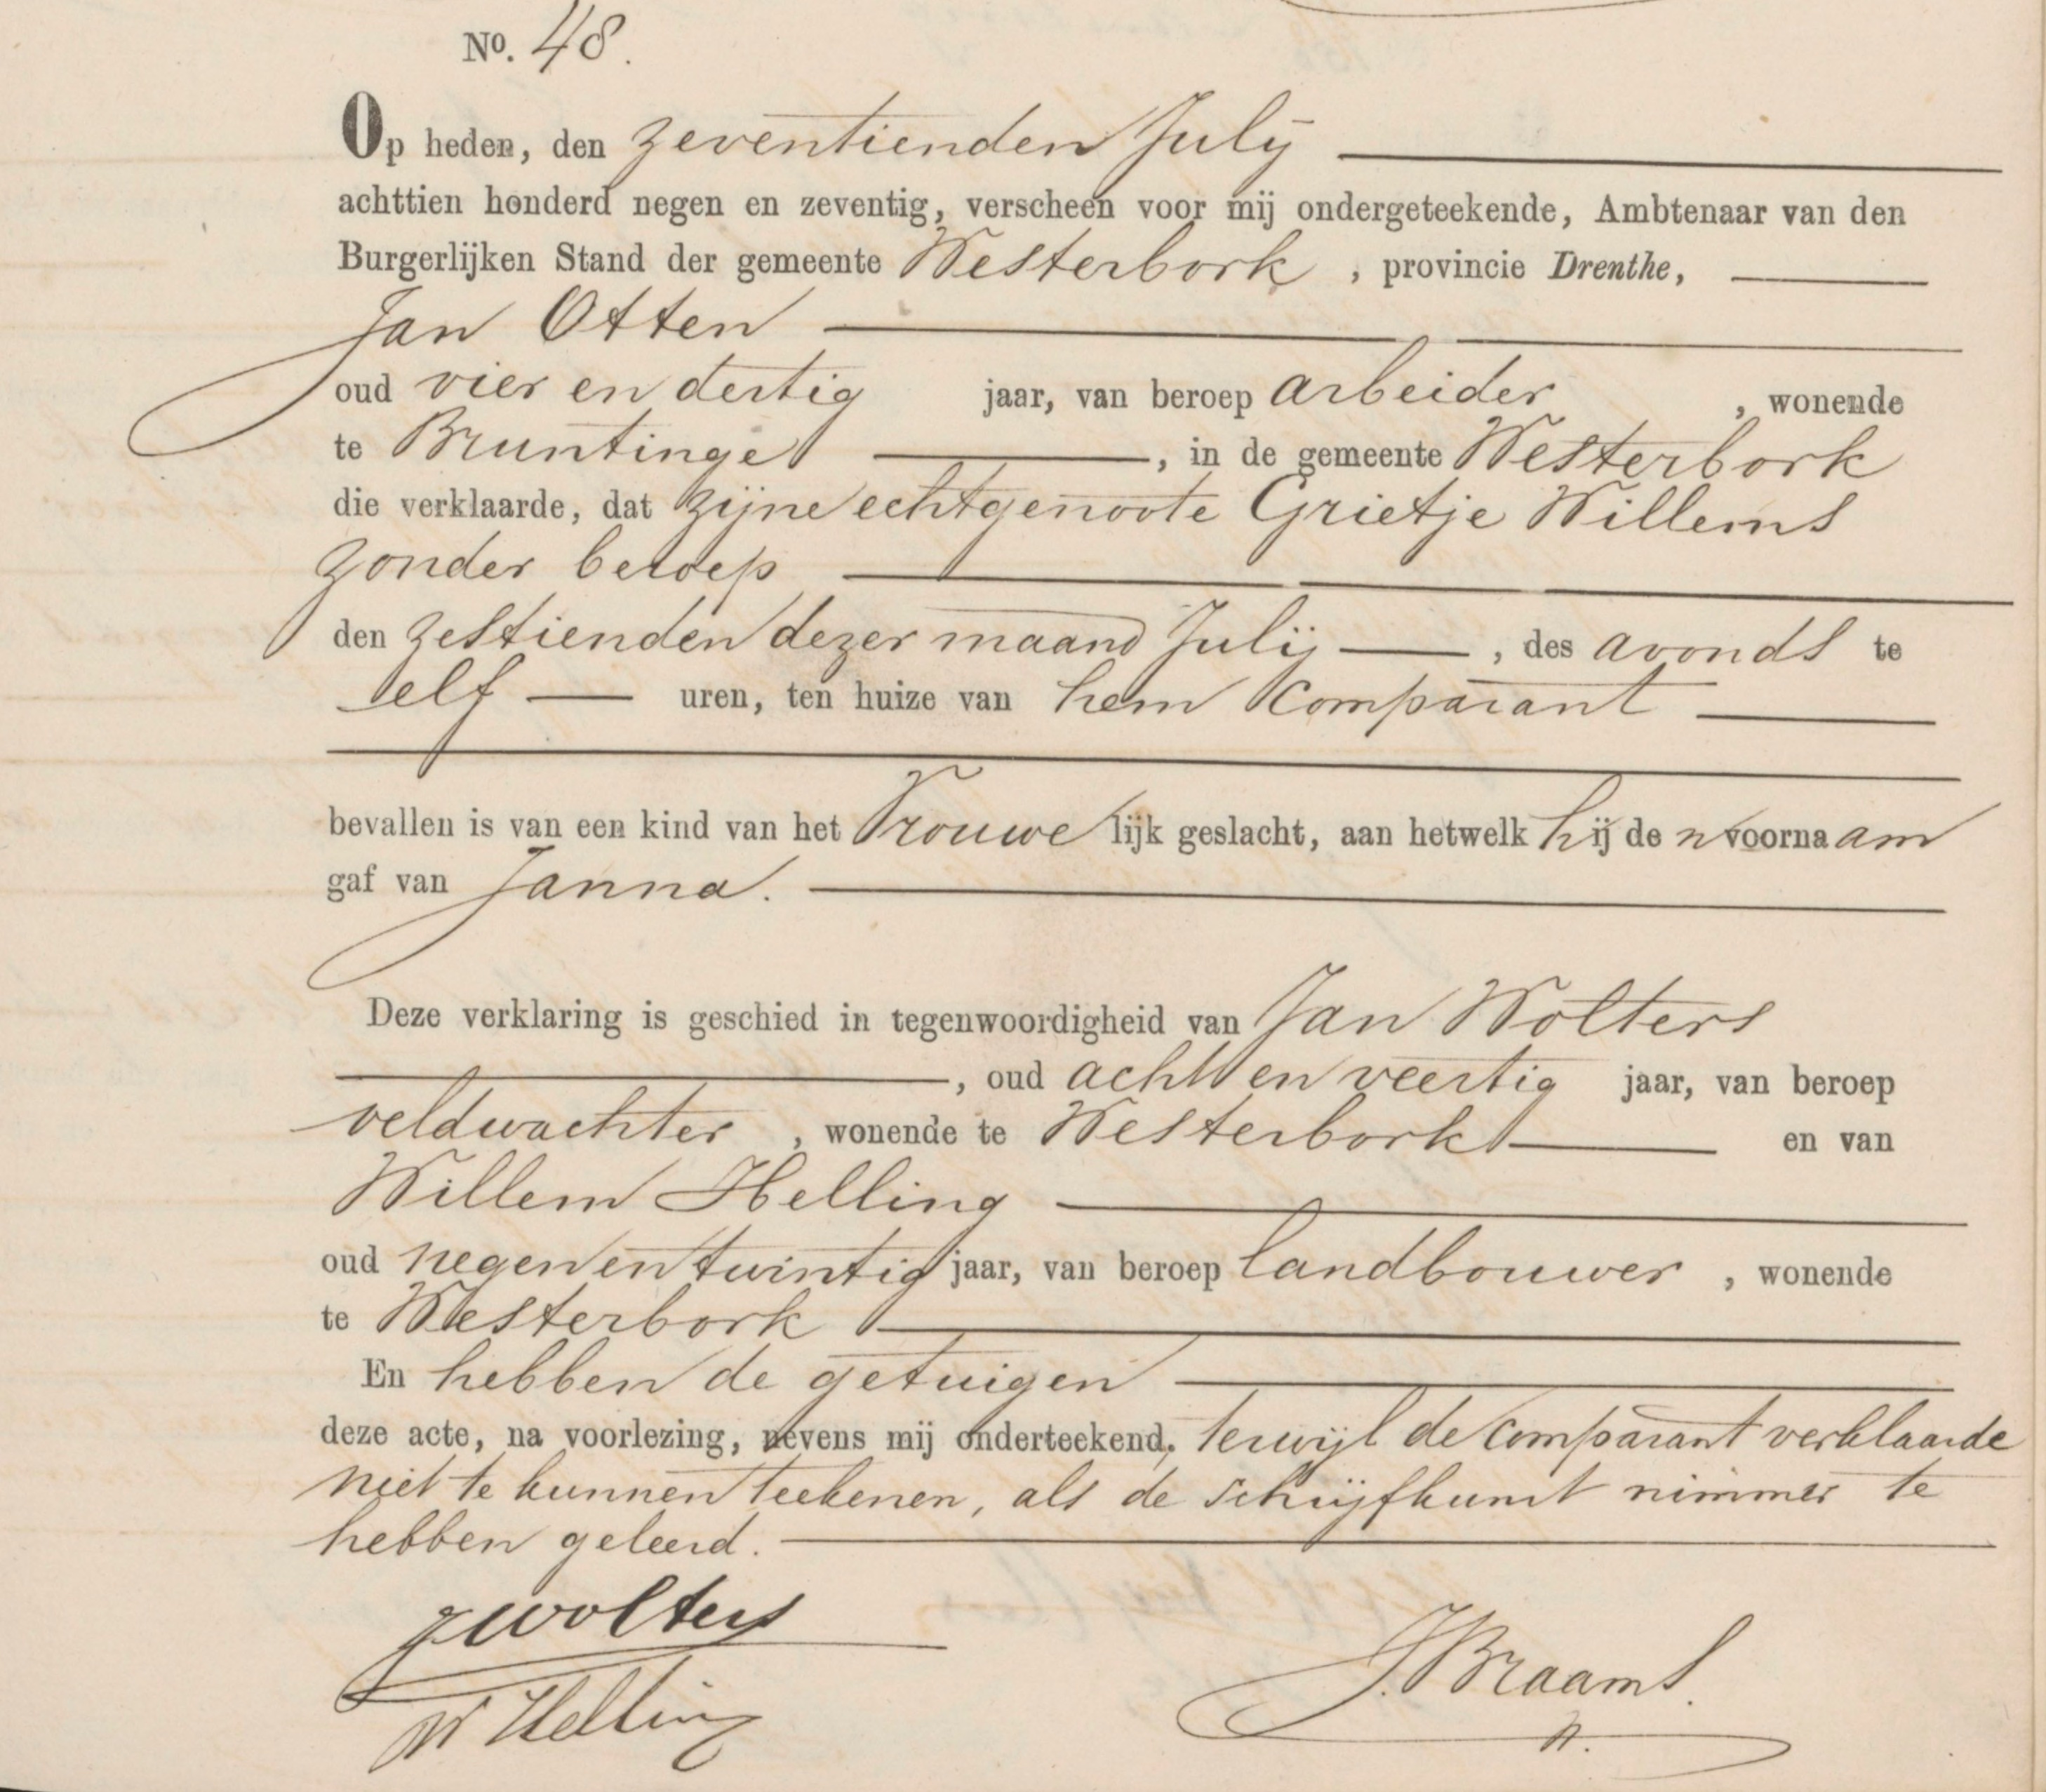 No. 48.
Op heden, den zeventienden Julij
achttien honderd negen en zeventig, verscheen voor mij ondergeteekende, Ambtenaar van den
Burgerlijken Stand der gemeente Westerbork, provincie Drenthe,
Jan Otten
oud vier en dertig jaar, van beroep arbeider, wonende
te Bruntinge, in de gemeente Westerbork
die verklaarde, dat zijne echtgenoote Grietje Willems
zonder beroep
den zestienden dezer maand Julij, des avonds te
elf uren, ten huize van hem comparant
bevallen is van een kind van het Vrouwelijk geslacht, aan hetwelk hij den voornaam
gaf van Janna.
Deze verklaring is geschied in tegenwoordigheid van Jan Wolters
, oud acht en veertig jaar, van beroep
veldwachter, wonende te Westerbork en van
Willem Helling
oud negen en twintig jaar, van beroep landbouwer, wonende
te Westerbork
En hebben de getuigen
deze acte, na voorlezing, nevens mij onderteekend, terwijl de comparant verklaarde
niet te kunnen teekenen, als de schrijfkunst nimmer te
hebben geleerd.
J Wolters
W Helling
J. Braams.